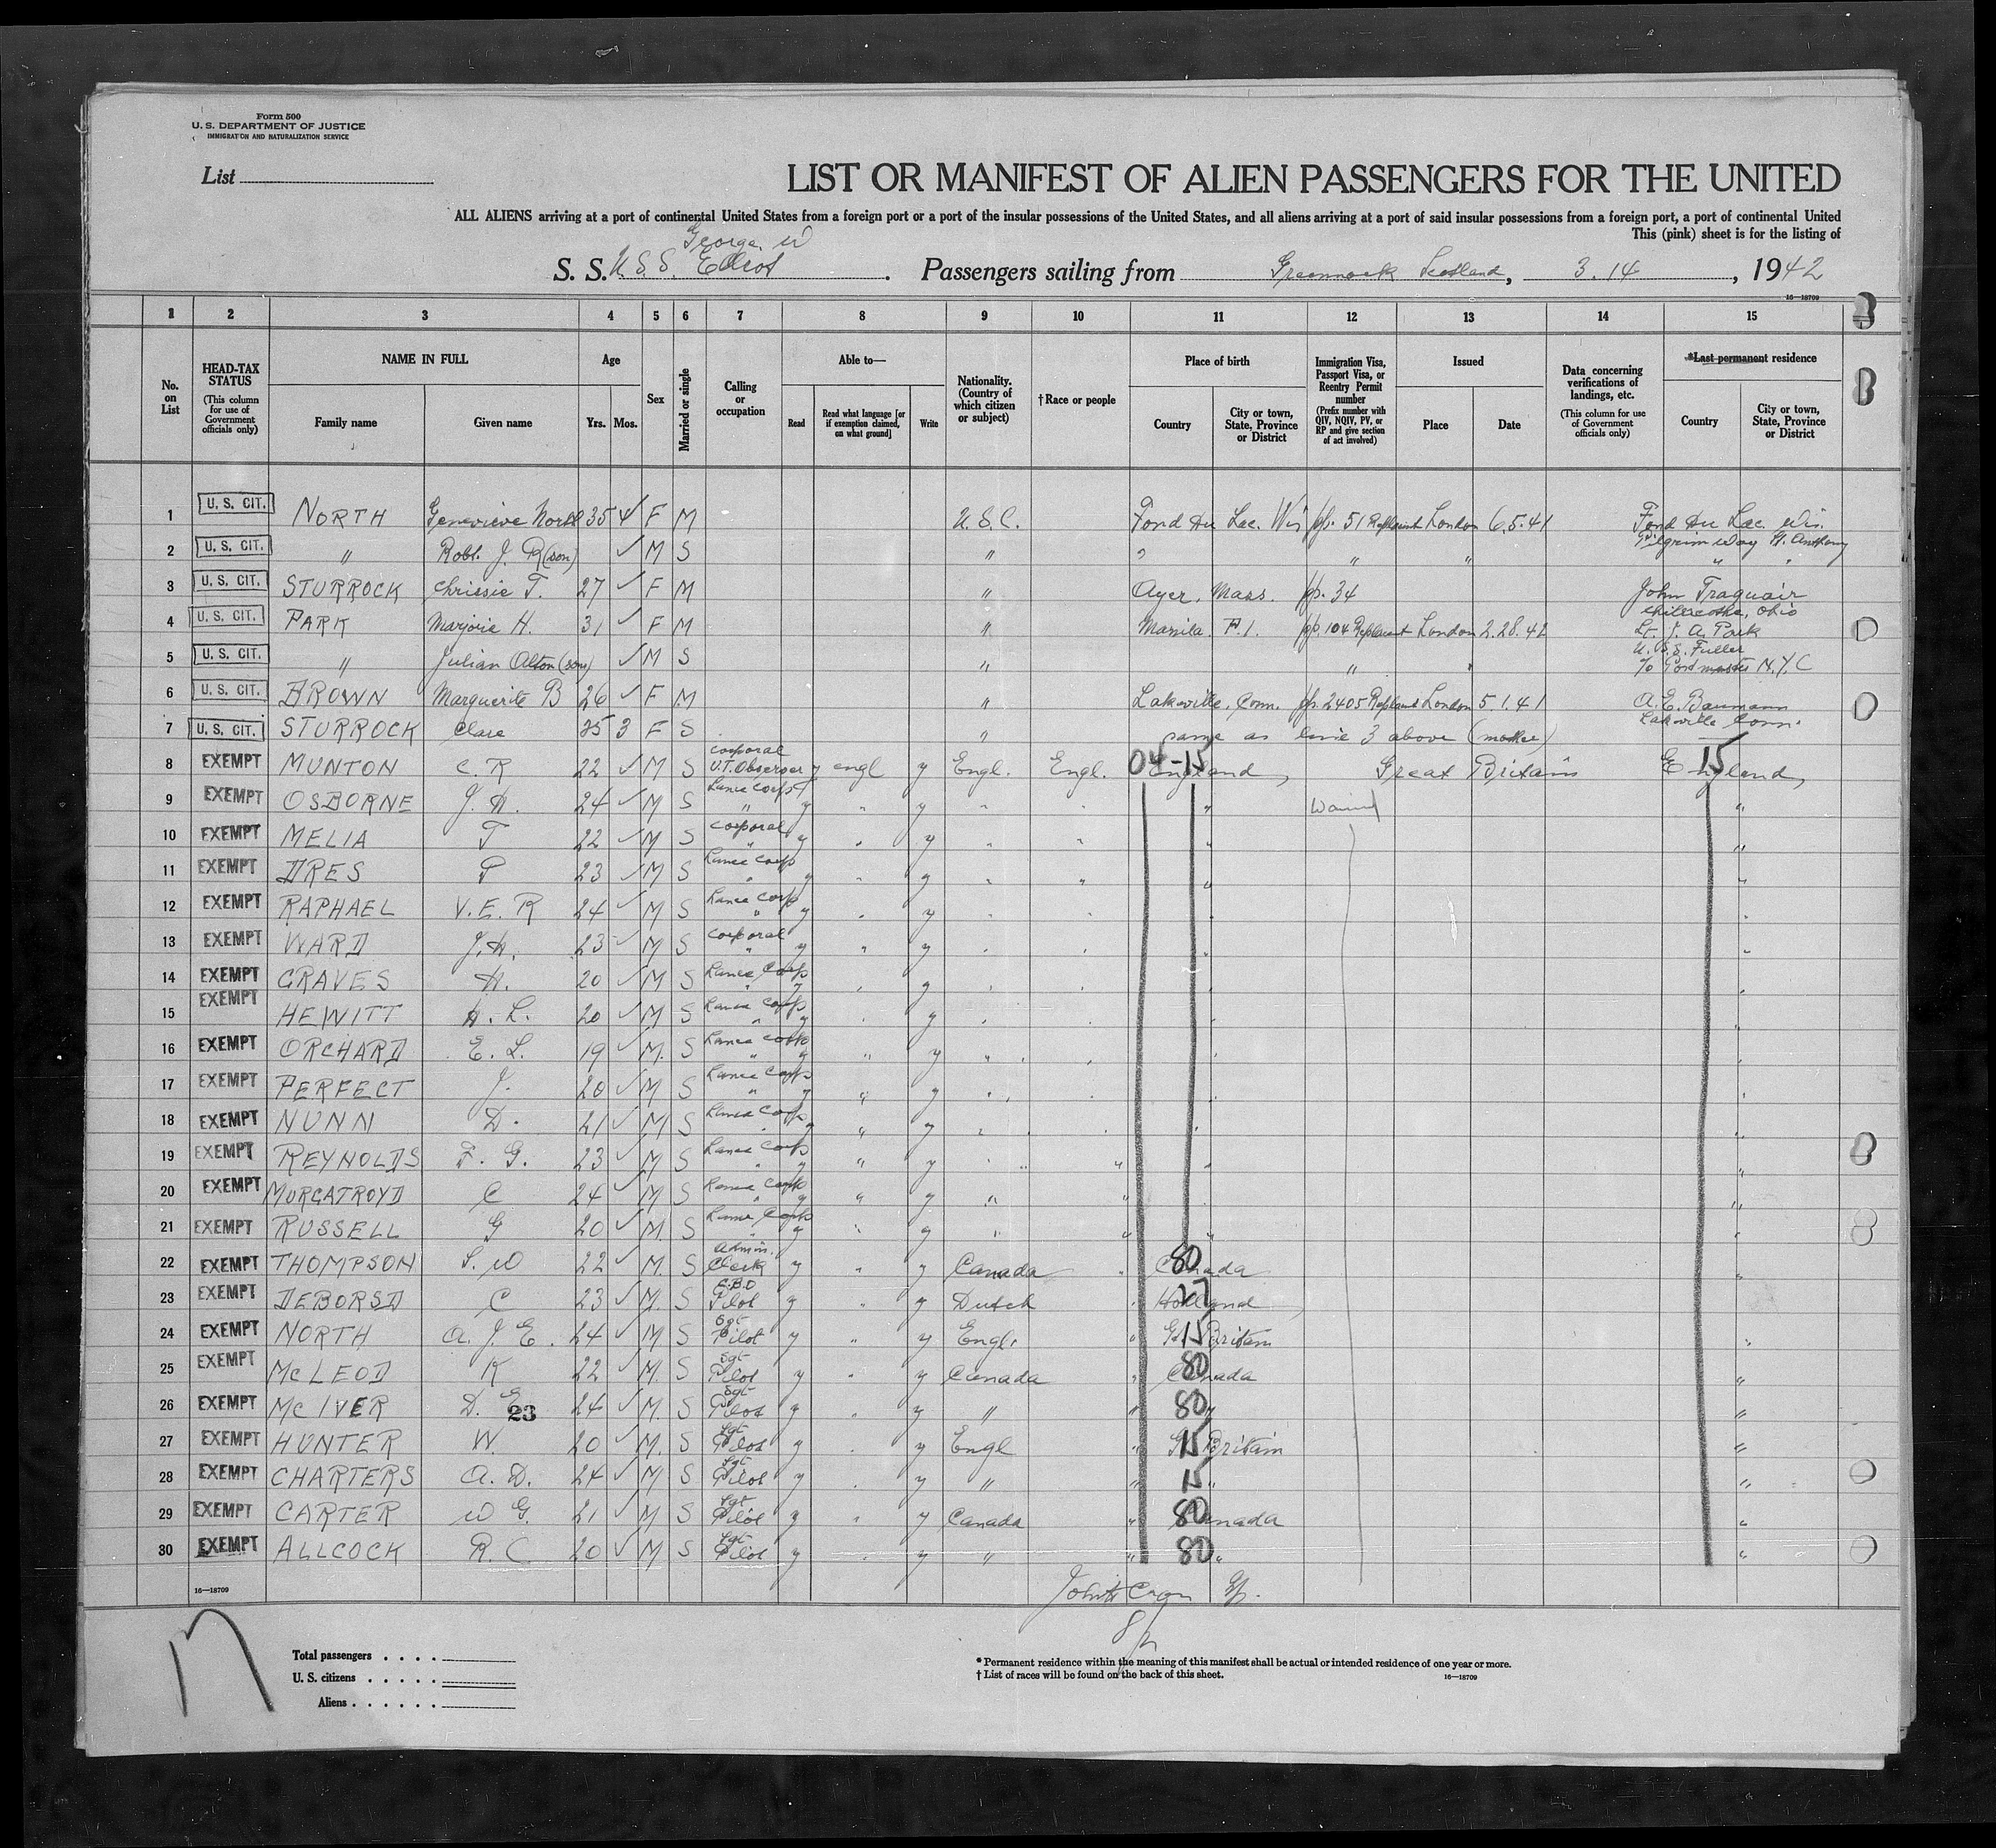 Form 500
U. S. DEPARTMENT OF JUSTICE
IMMIGRATION AND NATURALIZATION SERVICE
List
LIST OR MANIFEST OF ALIEN PASSENGERS FOR THE UNITED
ALL ALIENS arriving at a port of continental United States from a foreign port or a port of the insular possessions of the United States, and all aliens arriving at a port of said insular possessions from a foreign port, a port of continental United
This (pink) sheet is for the listing of
George W
S. S. U.S.S. Elliot . Passengers sailing from Greenock Scotland, 3.14, 1942
16—18709
1 2 3 4 5 6 7 8 9 10 11 12 13 14 15
No. on List
HEAD-TAX STATUS (This column for use of Government officials only)
NAME IN FULL Family name Given name
Age Yrs. Mos.
Sex
Married or single
Calling or occupation
Able to— Read Read what language [or if exemption claimed, on what ground] Write
Nationality. (Country of which citizen or subject)
†Race or people
Place of birth Country City or town, State, Province or District
Immigration Visa, Passport Visa, or Reentry Permit number (Prefix number with QIV, NQIV, PV, or RP and give section of act involved)
Issued Place Date
Data concerning verifications of landings, etc. (This column for use of Government officials only)
*Last permanent residence Country City or town, State, Province or District
1 U. S. CIT. NORTH Genevieve North 35 4 F M U.S.C. Fond du Lac. Wis pp. 51 London 6.5.41 Fond du Lac. Wis.
2 U. S. CIT. " Robt. J. R (son) ✓ M S " " " " Pilgrim Way St. Anthony
3 U. S. CIT. STURROCK Chrissie T. 27 ✓ F M " Ayer, Mass. pp. 34 John Traquair
Chillicothe, Ohio
4 U. S. CIT. PARK Marjorie H. 31 ✓ F M " Manila P.I. pp 104 London 2.28.42 Lt. J. A. Park
U.S.S. Fuller
5 U. S. CIT. " Julian Alton (son) ✓ M S " " " % Postmaster N.Y.C
6 U. S. CIT. BROWN Marguerite B 26 ✓ F M " Lakeville, Conn. pp. 2405 London 5.1.41 A. E. Baumann
Lakeville Conn.
7 U. S. CIT. STURROCK Clare 3 F S " same as line 3 above (mother)
8 EXEMPT MUNTON C. R 22 ✓ M S corporal U.T. Observer y engl y Engl. Engl. 04-15 England, Great Britain 15 England,
9 EXEMPT OSBORNE J. H. 24 ✓ M S Lance Corp " y " y " " " Waived "
10 EXEMPT MELIA T 22 ✓ M S corporal " y " y " " " "
11 EXEMPT DRES P 23 ✓ M S Lance Corp " y " y " " " "
12 EXEMPT RAPHAEL V. E. R 24 ✓ M S Lance Corp " y " y " " " "
13 EXEMPT WARD J. H. 23 ✓ M S corporal " y " y " " "
14 EXEMPT GRAVES H. 20 ✓ M S Lance Corp " y " y " " " "
15 EXEMPT HEWITT H. L. 20 ✓ M S Lance Corp " y " y " " " "
16 EXEMPT ORCHARD E. L. 19 ✓ M. S Lance Corp " y " y " " " "
17 EXEMPT PERFECT J. 20 ✓ M S Lance Corp " y " y " " " "
18 EXEMPT NUNN D. 21 ✓ M S Lance Corp " y " y " " " "
19 EXEMPT REYNOLDS F. G. 23 ✓ M S Lance Corp " y " y " " " "
20 EXEMPT MURGATROYD C 24 ✓ M S Lance Corp " y " y " " " "
21 EXEMPT RUSSELL G 20 ✓ M. S Lance Corp " y " y " " " "
22 EXEMPT THOMPSON S. W 22 ✓ M. S Admin. Clerk y " y Canada " 80 Canada "
23 EXEMPT DEBORSD C 23 ✓ M. S Pilot y " y Dutch " 27 Holland
24 EXEMPT NORTH A. J. E. 24 ✓ M S Sgt Pilot y " y Engl. " 15 Gt Britain "
25 EXEMPT McLEOD K 22 ✓ M. S Sgt Pilot y " y Canada " 80 Canada "
26 EXEMPT McIVER D. E 23 24 ✓ M. S Sgt Pilot y " y " " 80 " "
27 EXEMPT HUNTER W. 20 ✓ M. S Sgt Pilot y " y Engl " 15 Gt Britain "
28 EXEMPT CHARTERS A. D. 24 ✓ M S Sgt Pilot y " y " " 15 " "
29 EXEMPT CARTER W G. 21 ✓ M S Sgt Pilot y " y Canada " 80 Canada "
30 EXEMPT ALLCOCK R. C. 20 ✓ M S Sgt Pilot y " y " " 80 " "
16—18709
Total passengers . . . .
U. S. citizens . . . . .
Aliens . . . . . .
* Permanent residence within the meaning of this manifest shall be actual or intended residence of one year or more.
† List of races will be found on the back of this sheet.
16—18709